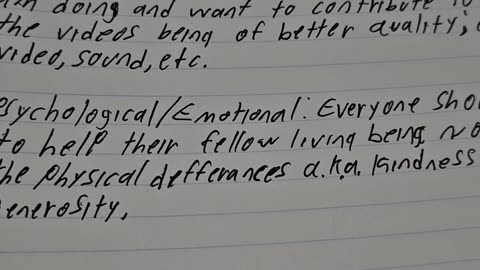 doing and want to contribute to
the videos being of better quality,
video, sound, etc.
Psychological/Emotional: Everyone sho
to help their fellow living being no
the physical defferances a.k.a. kindness
enerosity,